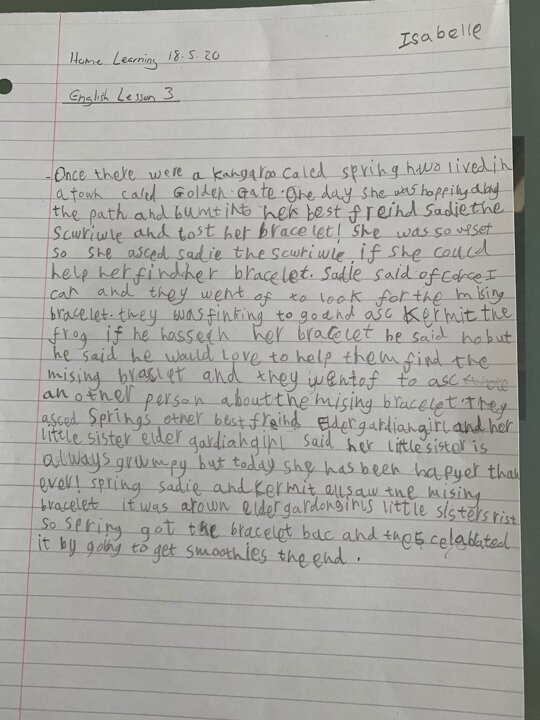 Isabelle
Home Learning 18.5.20
English Lesson 3
Once there were a kangaroo caled spring hwo lived in
a town caled Golden Gate. One day she was hopping along
the path and bumt into her best freind Sadie the
scwriwle and lost her bracelet! She was so upset
so she asced sadie the scwriwle if she could
help her find her bracelet. Sadie said of corce I
can and they went of to look for the mising
bracelet. they was finking to go and asc Kermit the
frog if he has seen her bracelet he said no but
he said he would love to help them find the
mising braslet and they went of to asc
an other person about the mising bracelet. They
asced Springs other best freind Elder gardian girl and her
little sister elder gardian girl said her little sister is
always grumpy but today she has been hapyer than
ever! spring sadie and Kermit all saw the mising
bracelet it was arown elder gardongirls little sisters rist
so spring got the bracelet bac and they celabated
it by going to get smoothies the end.